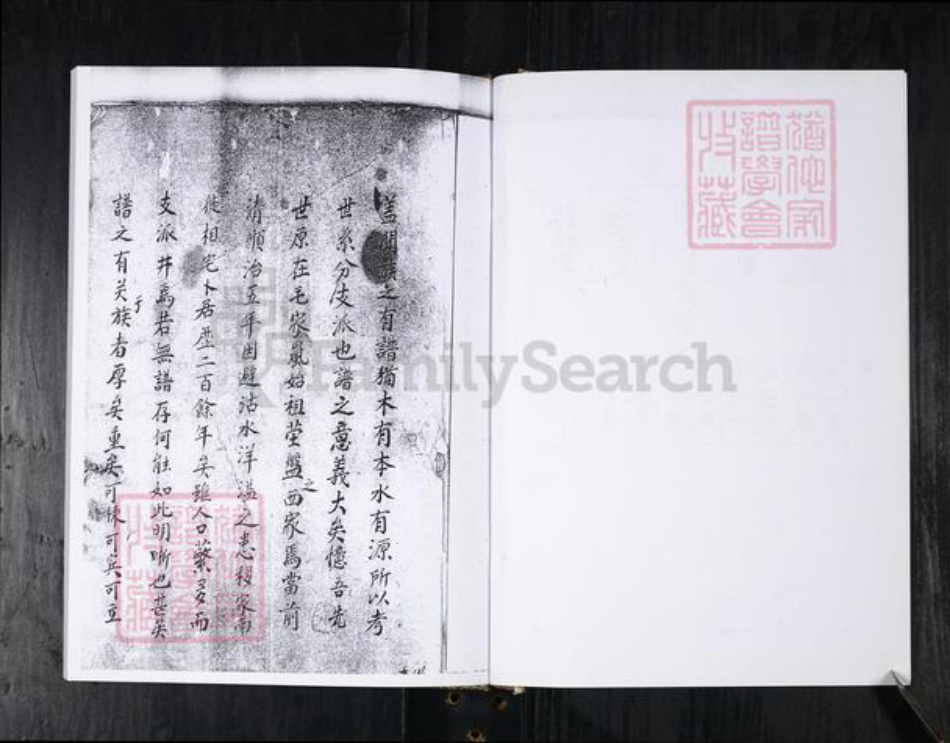 猶他家
譜學會
收藏
蓋聞族之有譜猶木有本水有源所以考
世系分支派也譜之意義大矣憶吾先
世原在毛家 始祖塋盤之西家焉當前
清順治五年因避沽水洋溢之患移家南
徙相宅卜居歷二百餘年矣雖人口蕃多而
支派井焉若無譜存何能如此明晰也甚矣
譜之有關于族者厚矣重矣可 可 可立
猶他家
譜學會
收藏
FamilySearch